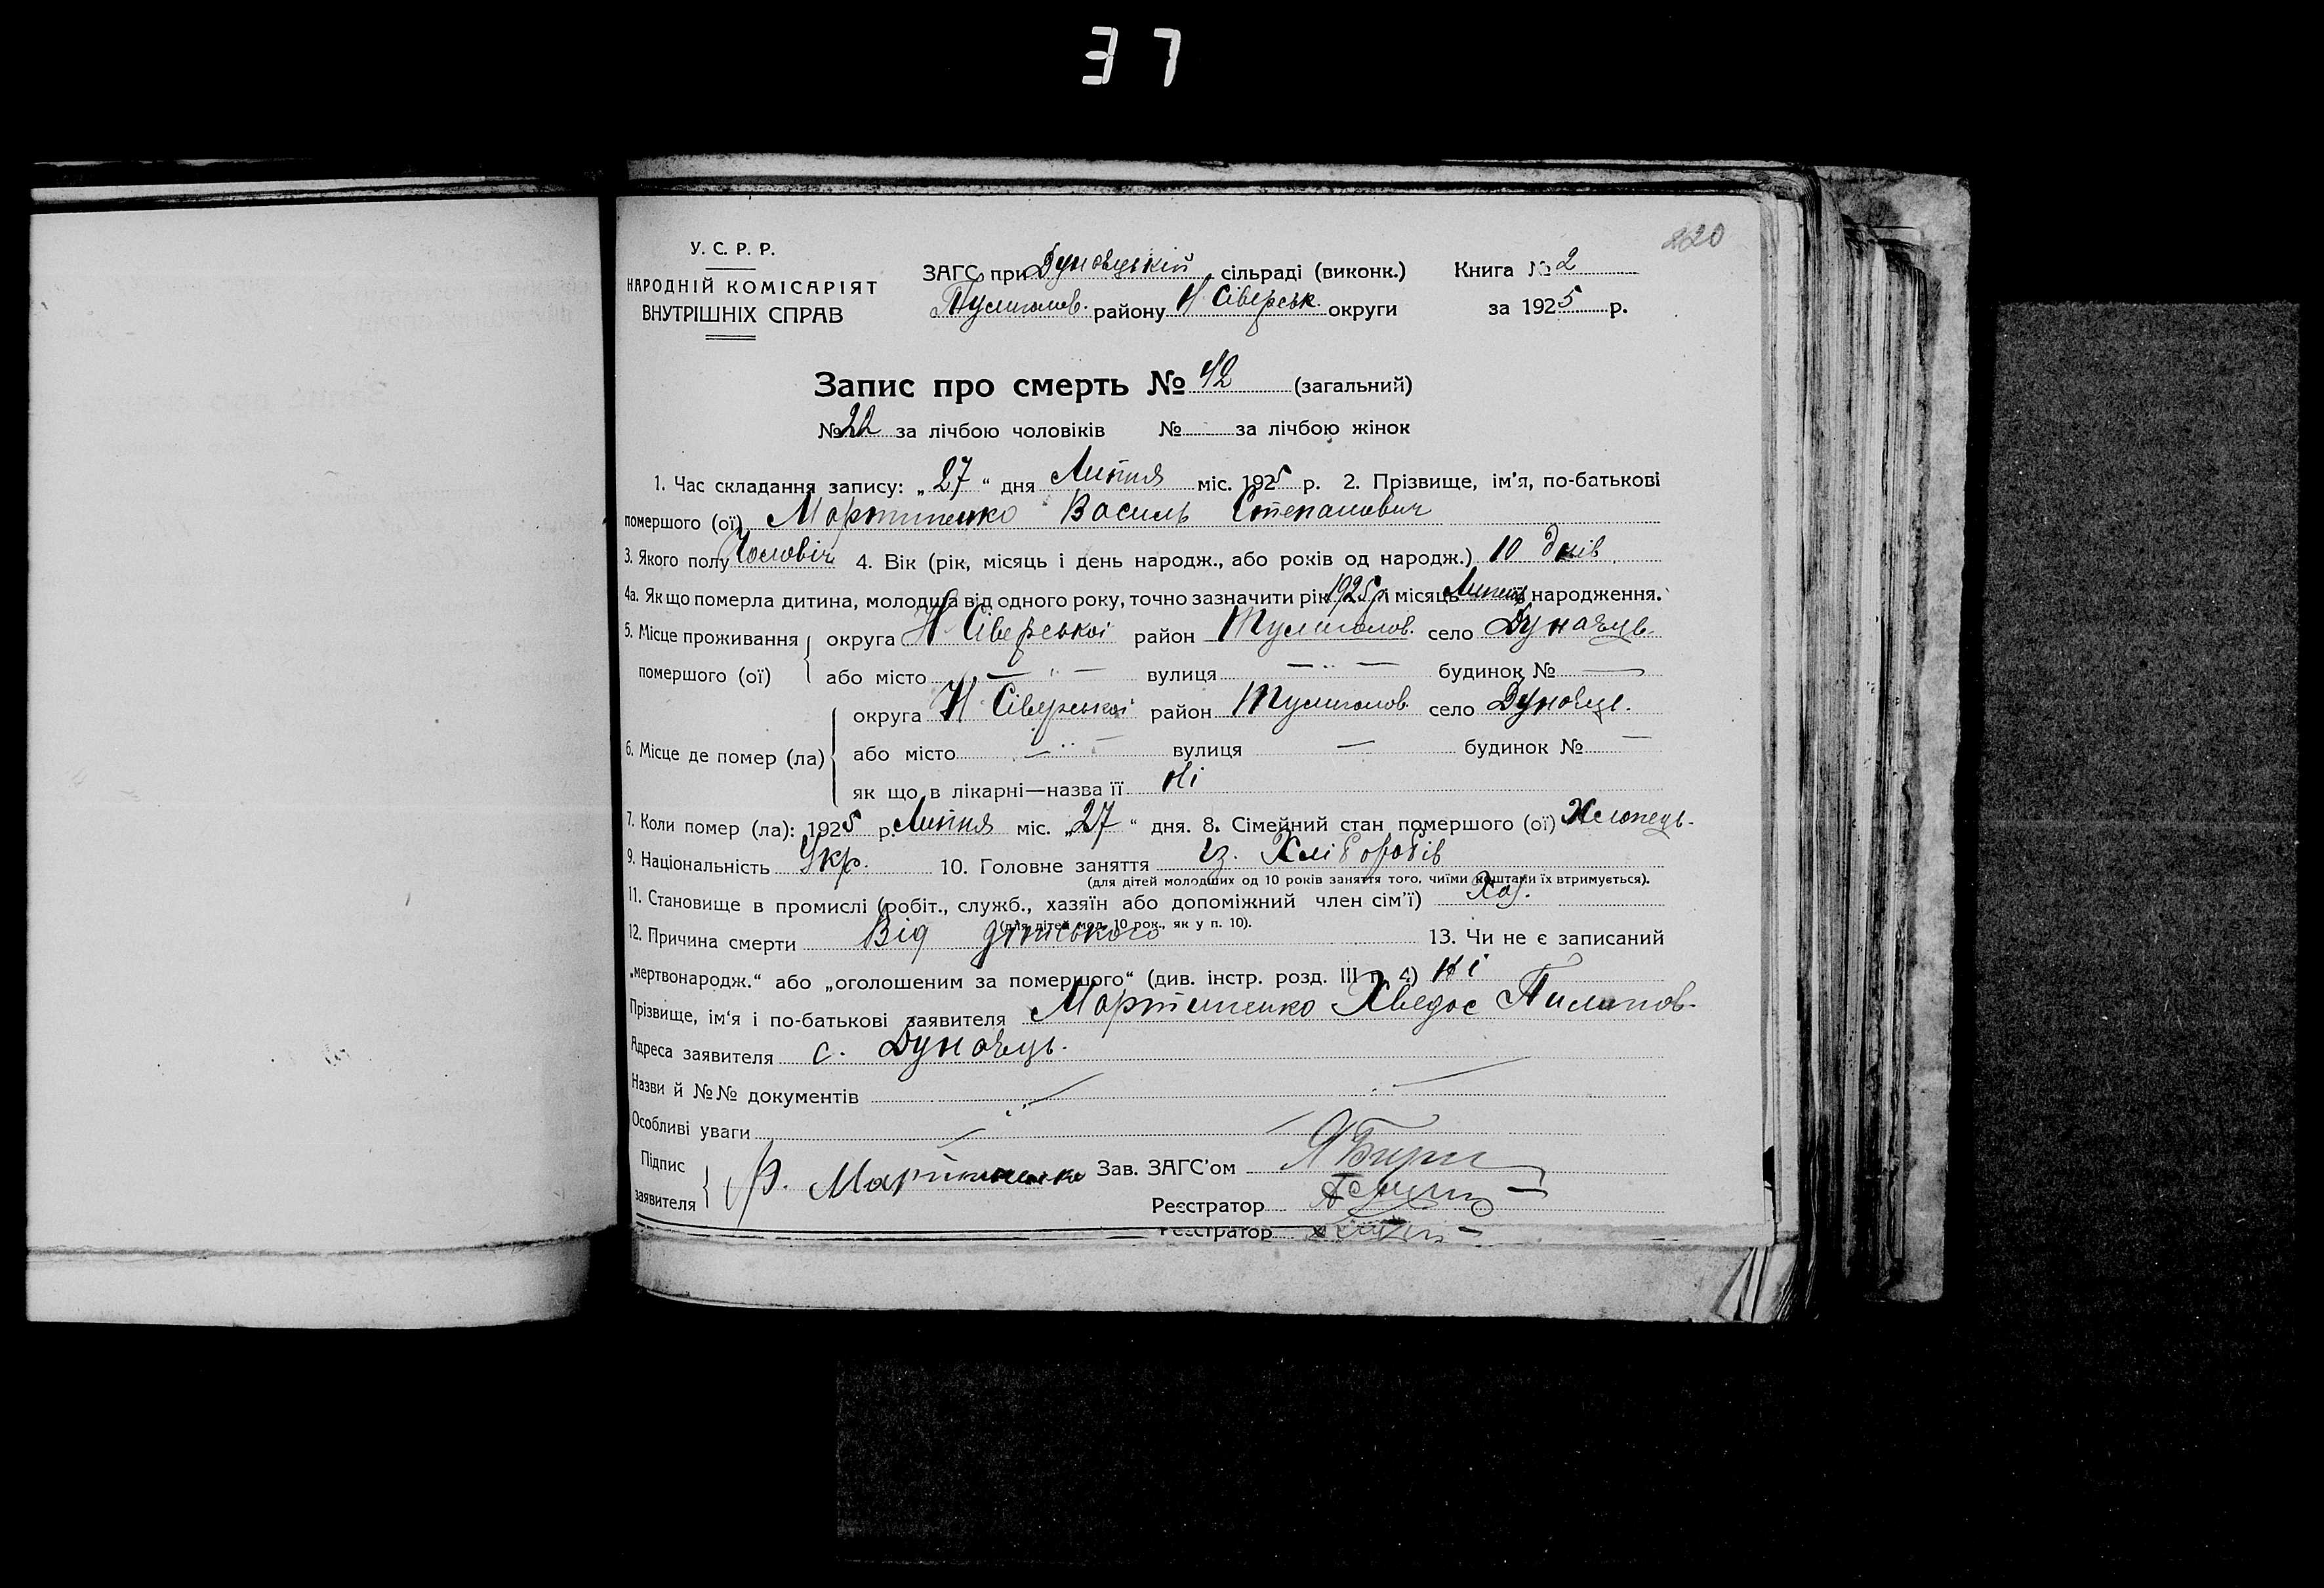 37
220
У. С. Р. Р.
НАРОДНІЙ КОМІСАРІЯТ
ВНУТРІШНІХ СПРАВ
ЗАГС при Дуновецькій сільраді (виконк.) Книга № 2
Тулиголов. району Н Сіверськ. округи за 1925 р.
Запис про смерть № 42 (загальний)
№ 22 за лічбою чоловіків № за лічбою жінок
1. Час складання запису: „27“ дня Липня міс. 1925 р. 2. Прізвище, ім'я, по-батькові
помершого (ої) Мартиненко Василь Степанович
3. Якого полу Чоловіч 4. Вік (рік, місяць і день народж., або років од народж.) 10 днів
4а. Як що померла дитина, молодша від одного року, точно зазначити рік 1925 р і місяць Липень народження.
5. Місце проживання помершого (ої) округа Н Сіверської район Тулиголов. село Дунаець
або місто — " — вулиця — " — будинок № —
6. Місце де помер (ла) округа Н Сіверської район Тулиголов. село Дунаец.
або місто — " — вулиця — будинок № —
як що в лікарні—назва її Ні
7. Коли помер (ла): 1925 р. Липня міс. „27“ дня. 8. Сімейний стан помершого (ої) Хлопець.
9. Національність Укр. 10. Головне заняття із. Хліборобів
(для дітей молодших од 10 років заняття того, чиїми коштами їх втримується).
11. Становище в промислі (робіт., служб., хазяїн або допоміжний член сім'ї) Хаз.
(для дітей мол. 10 рок., як у п. 10).
12. Причина смерти Від дитського 13. Чи не є записаний
„мертвонародж.“ або „оголошеним за помершого“ (див. інстр. розд. III п. 4) Ні
Прізвище, ім'я і по-батькові заявителя Мартиненко Хведос Пилипов.
Адреса заявителя с. Дунаець.
Назви й №№ документів
Особливі уваги
Підпис заявителя Ф. Мартиненко Зав. ЗАГС'ом
Реєстратор
Реєстратор